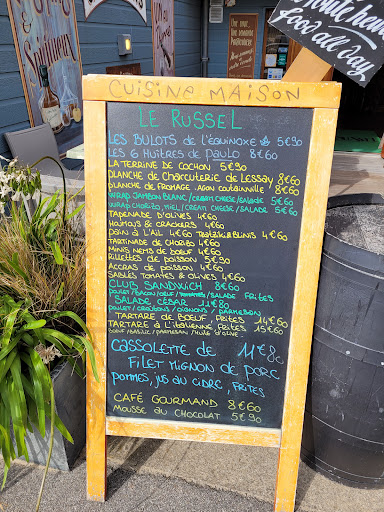 Spiritueux
Toutchene
food all day
CUISINE MAISON
LE RUSSEL
LES BULOTS DE L'ÉQUINOXE 5€90
LES 6 HUÎTRES DE PAULO 8€60
LA TERRINE DE COCHON 5€90
PLANCHE DE CHARCUTERIE DE LESSAY 8€60
PLANCHE DE FROMAGE. AGON COUTAINVILLE 8€60
WRAP JAMBON BLANC/CREAM CHEESE/SALADE 5€50
WRAP CHORIZO/MIEL/CREAM CHEESE/SALADE 5€90
TAPENADE D'OLIVES 4€60
HOUMOUS & CRACKERS 4€60
PAIN À L'AIL 4€60 TZATZIKI & BLINIS 4€60
TARTINADE DE CHORIZO 4€60
MINIS NEMS DE BŒUF 4€60
RILLETTES DE POISSON 5€90
ACCRAS DE POISSON 4€60
SABLÉS TOMATES & OLIVES 4€60
CLUB SANDWICH 8€60
POULET/BACON/OEUF/TOMATES/SALADE FRITES
SALADE CÉSAR 11€80
POULET/CROUTONS/OIGNONS/PARMESAN
TARTARE DE BOEUF, FRITES 14€60
TARTARE À L'ITALIENNE, FRITES 15€60
BOEUF/BASILIC/PARMESAN/HUILE D'OLIVE
CASSOLETTE DE 11€80
FILET MIGNON DE PORC
POMMES, JUS AU CIDRE, FRITES
CAFÉ GOURMAND 8€60
MOUSSE AU CHOCOLAT 5€90